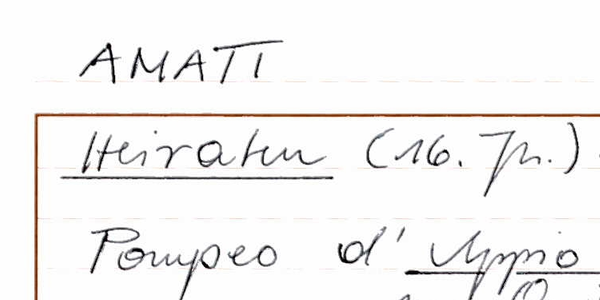 AMATI
Heiraten (16. Jh.)
Pompeo d'